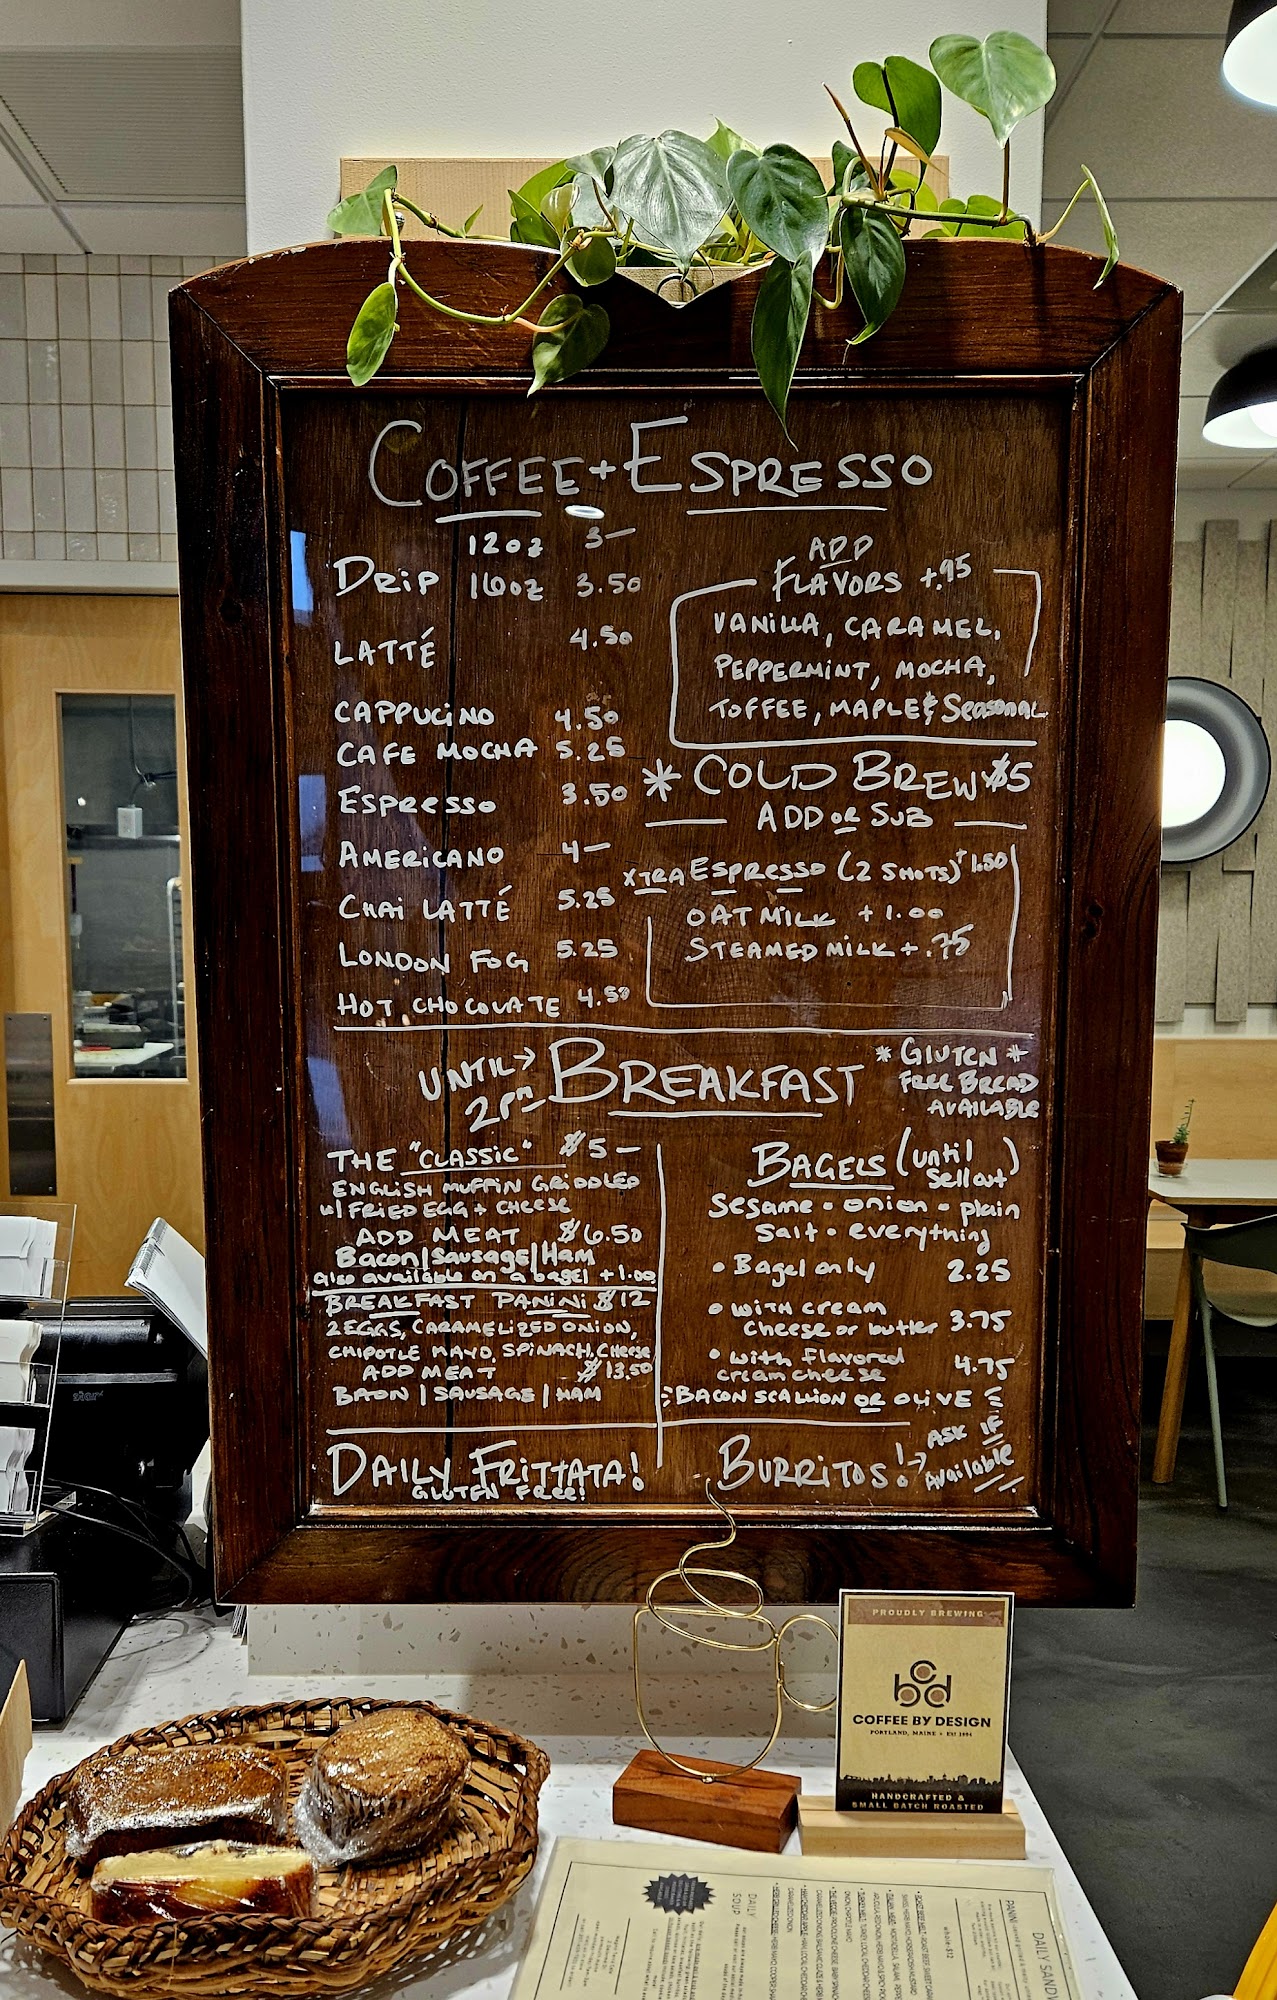 COFFEE + ESPRESSO
12oz 3—
DRIP 16oz 3.50
LATTÉ 4.50
CAPPUCINO 4.50
CAFE MOCHA 5.25
ESPRESSO 3.50
AMERICANO 4—
CHAI LATTÉ 5.25
LONDON FOG 5.25
HOT CHOCOLATE 4.50
ADD
FLAVORS +.95
VANILLA, CARAMEL,
PEPPERMINT, MOCHA,
TOFFEE, MAPLE & Seasonal
* COLD BREW $5
ADD OR SUB
XTRA ESPRESSO (2 SHOTS) + 1.50
OAT MILK + 1.00
STEAMED MILK + .75
UNTIL →
2PM
BREAKFAST
* GLUTEN *
FREE BREAD
AVAILABLE
THE "CLASSIC" $5—
ENGLISH MUFFIN GRIDDLED
w/ FRIED EGG + CHEESE
ADD MEAT $6.50
Bacon | Sausage | Ham
also available on a bagel +1.00
BREAKFAST PANINI $12
2 EGGS, CARAMELIZED ONION,
CHIPOTLE MAYO, SPINACH, CHEESE
ADD MEAT $13.50
BACON | SAUSAGE | HAM
DAILY FRITTATA!
GLUTEN FREE!
BAGELS (until
sell out)
Sesame • onion • plain
Salt • everything
• Bagel only 2.25
• with cream
cheese or butter 3.75
• with flavored
cream cheese 4.75
BACON SCALLION OR OLIVE
BURRITOS! → ASK IF
Available
star
PROUDLY BREWING
cbd
COFFEE BY DESIGN
PORTLAND, MAINE • EST 1994
HANDCRAFTED &
SMALL BATCH ROASTED
DAILY
SOUP
PANINI
DAILY SANDW